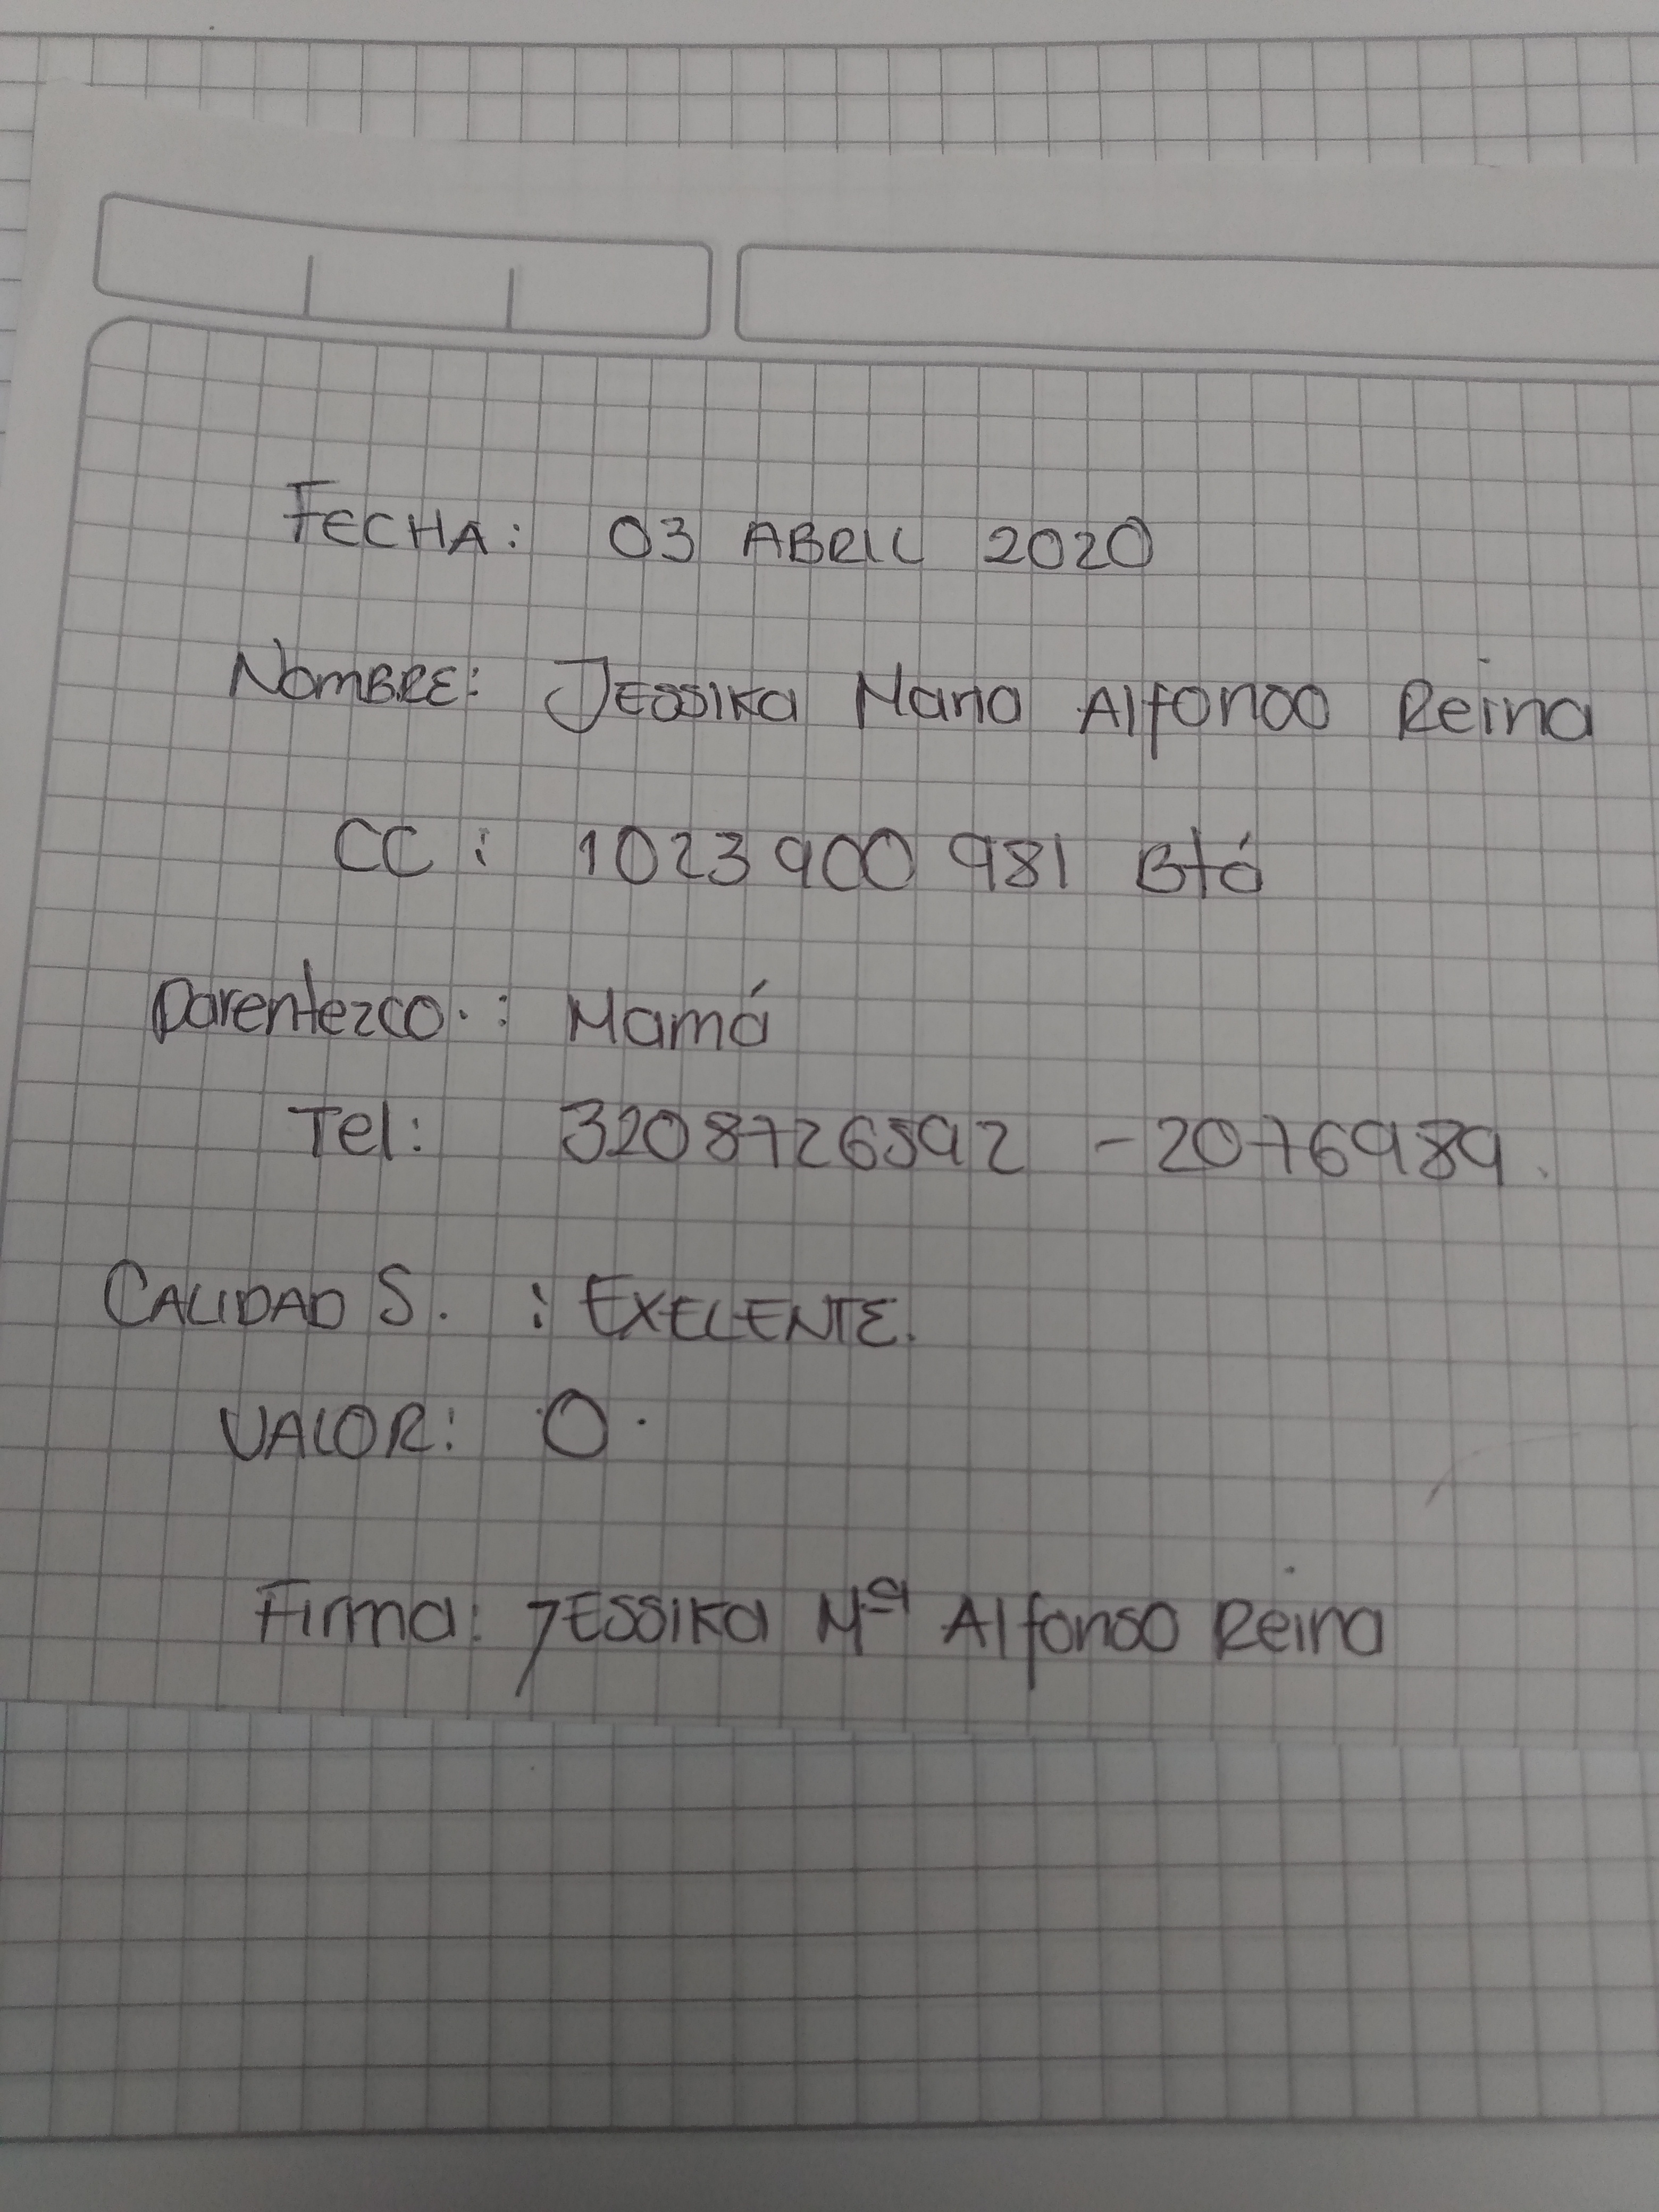 FECHA: 03 ABRIL 2020
NOMBRE: JESSIKA Maria Alfonso Reina
CC: 1023 900 981 Btá
Parentezco.: Mamá
Tel: 3208726592 - 2076989.
CALIDAD S. : EXELENTE.
VALOR: 0.
Firma: JESSIKA Mª Alfonso Reina